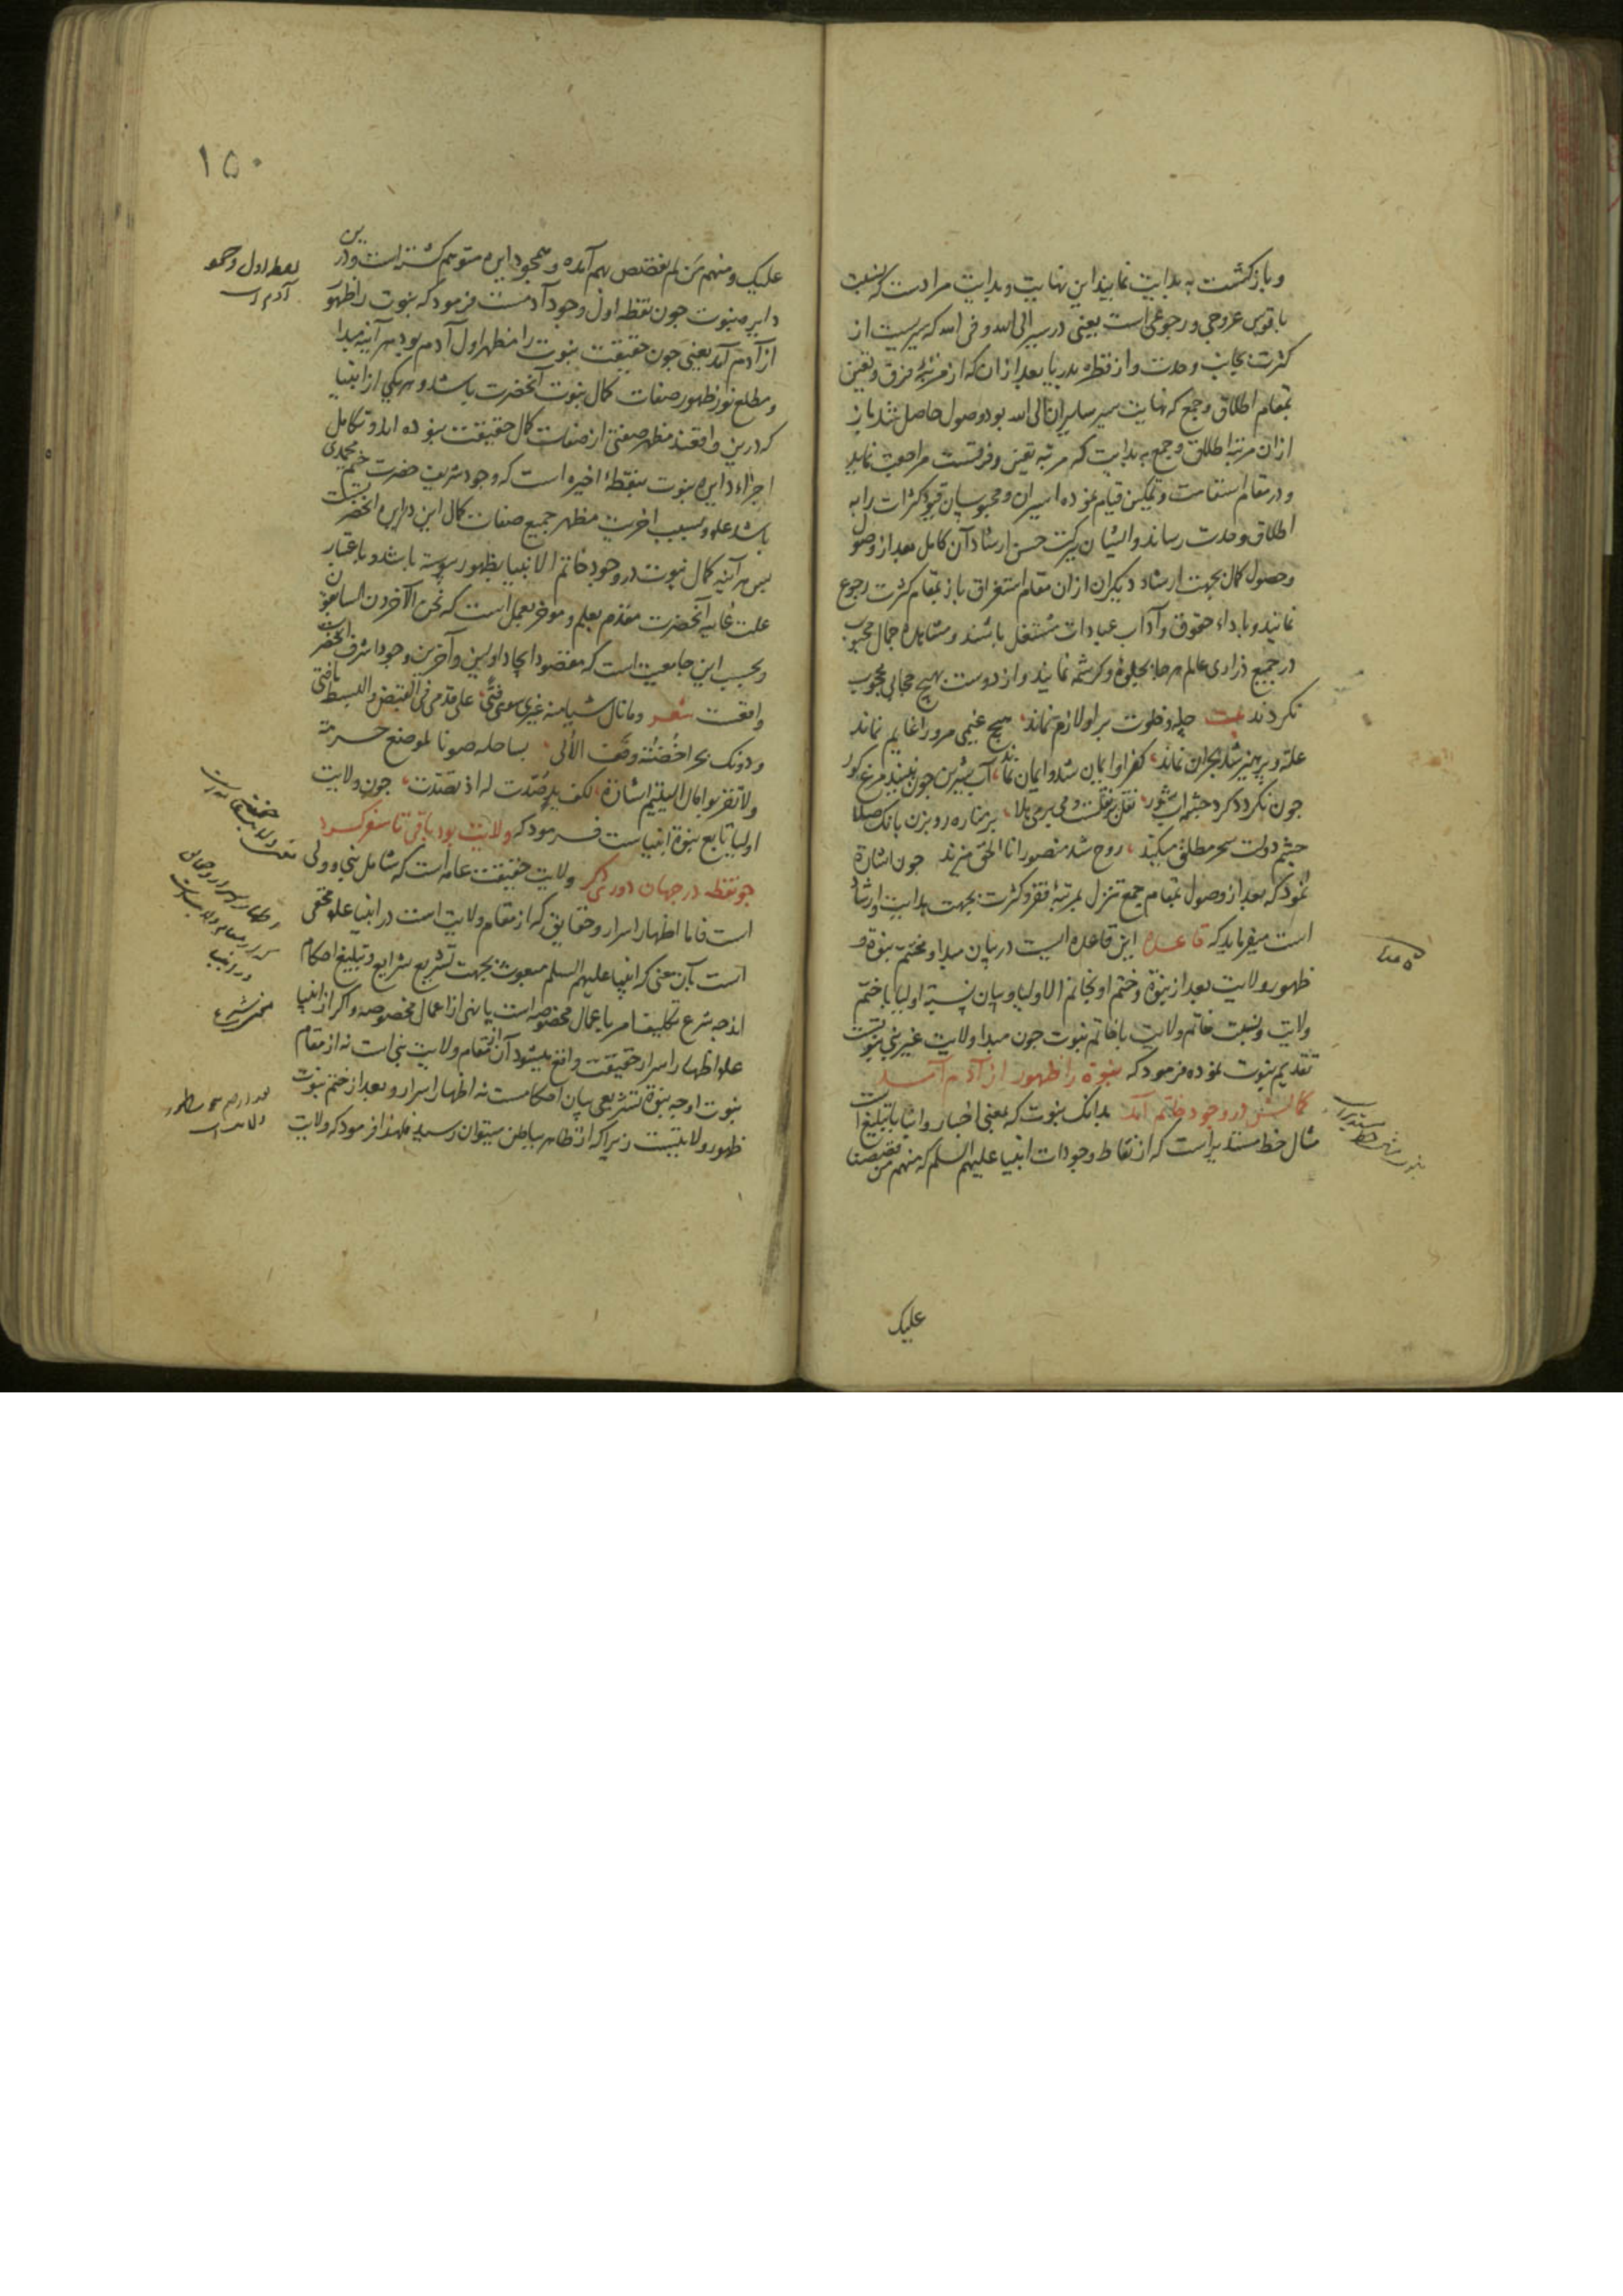 و بازگشت به بدایت نمایند این نهایت و بدایت مرادست که نسبت
با قوس عروجی و رجوعی است یعنی در سیر الی الله و فی الله که سیریست از
کثرت بجانب وحدت و از قطره بدریا بعد از آن که از مرتبهٔ فرق و تعین
بمقام اطلاق و جمع که نهایت سیر سایران الی الله بود وصول حاصل شد باز
از ان مرتبه اطلاق و جمع به بدایت که مرتبه تعین و فرقست مراجعت نماید
و در مقام استقامت و تمکین قیام نموده اسیران و محبوسان قیود کثرات را به
اطلاق وحدت رساند و ایشان ببرکت حسن ارشاد آن کامل بعد از وصول
و حصول کمال بجهت ارشاد دیگران از ان مقام استغراق باز بمقام کثرت رجوع
نمایند و باداء حقوق و آداب عبادات مشتغل باشند و مشاهده جمال محبوب
در جمیع ذراری عالم هر جا بجلوهٔ و کرشمه نمایند و از دوست بهیچ حجابی محجوب
نکردند بیت چله و خلوت برو لازم نماند هیچ غیمی مرورا غایم نماند
علت و پرهیز شد بحران نماند کفر او ایمان شد و ایمان نماند آب شیرین چون نبیند مرغ کور
چون نکردد کرد چشمه آب شور نقل بر نقلست و می بر می هلا بر مناره رو بزن بانک صلا
چشم دولت سحر مطلق میکند روح شد منصور انا الحق میزند چون اشارة
نمود که بعد از وصول بمقام جمع تنزل بمرتبهٔ فقر و کثرت بجهت هدایت و ارشاد
است میفرماید که قاعده این قاعده ایست در بیان مبدا و مختم نبوة و
ظهور ولایت بعد از نبوة و ختم او بخاتم الاولیا و بیان نسبة اولیا با ختم
ولایت و نسبت خاتم ولایت با خاتم نبوت چون مبدا ولایت غیر نبی نبوتست
تقدیم نبوت نموده فرمود که نبوة را ظهور از آدم آمد
کمالش در وجود خاتم آمد بدانک نبوت که بمعنی اخبار و انبا یا تبلیغ است
مثال خط مستدیر است که از نقاط وجودات انبیا علیهم السلم که منهم من قصصنا
علیک
۱۵۰
علیک و منهم من لم نقصص بهم آمده و همچو دایره متوهم کشته است و درین
دایره نبوت چون نقطه اول وجود آدمست فرمود که نبوت را ظهور
از آدم آمد یعنی چون حقیقت نبوت را مظهر اول آدم بود هر آینه مبدا
و مطلع نور ظهور صفات کمال نبوت آنحضرت باشد و هر یکی از انبیا
که درین واقعند مظهر صفتی از صفات کمال حقیقت نبوده اند و تکامل
اجزاء دایره نبوت بنقطهٔ اخیره است که وجود شریف حضرت ختم محمدی
باشد علم و بسبب اخریت مظهر جمیع صفات کمال این دایره انحضرتست
پس هر آینه کمال نبوت در وجود خاتم الانبیا بظهور پیوسته باشد و باعتبار
علت غائیه آنحضرت مقدم بعلم و موخر بعمل است که نحن الآخرون السابقون
و بحسب این جامعیت است که مقصود ایجاد اولین و آخرین وجود اشرف انحضرت
واقعست شعر و ما نال شیا منه غیری سوی فتی علی قدمی فی القبض و البسط ما فتی
و دونک بحرا خضته وقف الألی بساحله صونا لموضع حرمة
و لا تقربوا مال الیتیم اشارة لکف ید صدت له اذ تصدت چون ولایت
اولیا تابع نبوة انبیاست فرمود که ولایت بود باقی تا سفر کرد
چو نقطه در جهان دور دگر ولایت حقیقت عامه است که شامل نبی و ولی
است فاما اظهار اسرار و حقایق که از مقام ولایت است در انبیا علم مخفی
است بآن معنی که انبیا علیهم السلم مبعوث بجهت تشریع شرایع و تبلیغ احکام
از جه شرع تکلیف امر با عمال مخصوصه است یا نهی از اعمال مخصوصه و اکر از انبیا
علم اظهار اسرار حقیقت واقع میشود آن از مقام ولایت نبی است نه از مقام
نبوت او چه نبوة تشریعی بیان احکامست نه اظهار اسرار و بعد از ختم نبوت
ظهور ولایتست زیرا که از ظاهر بباطن میتوان رسید فلهذا فرمود که ولایت